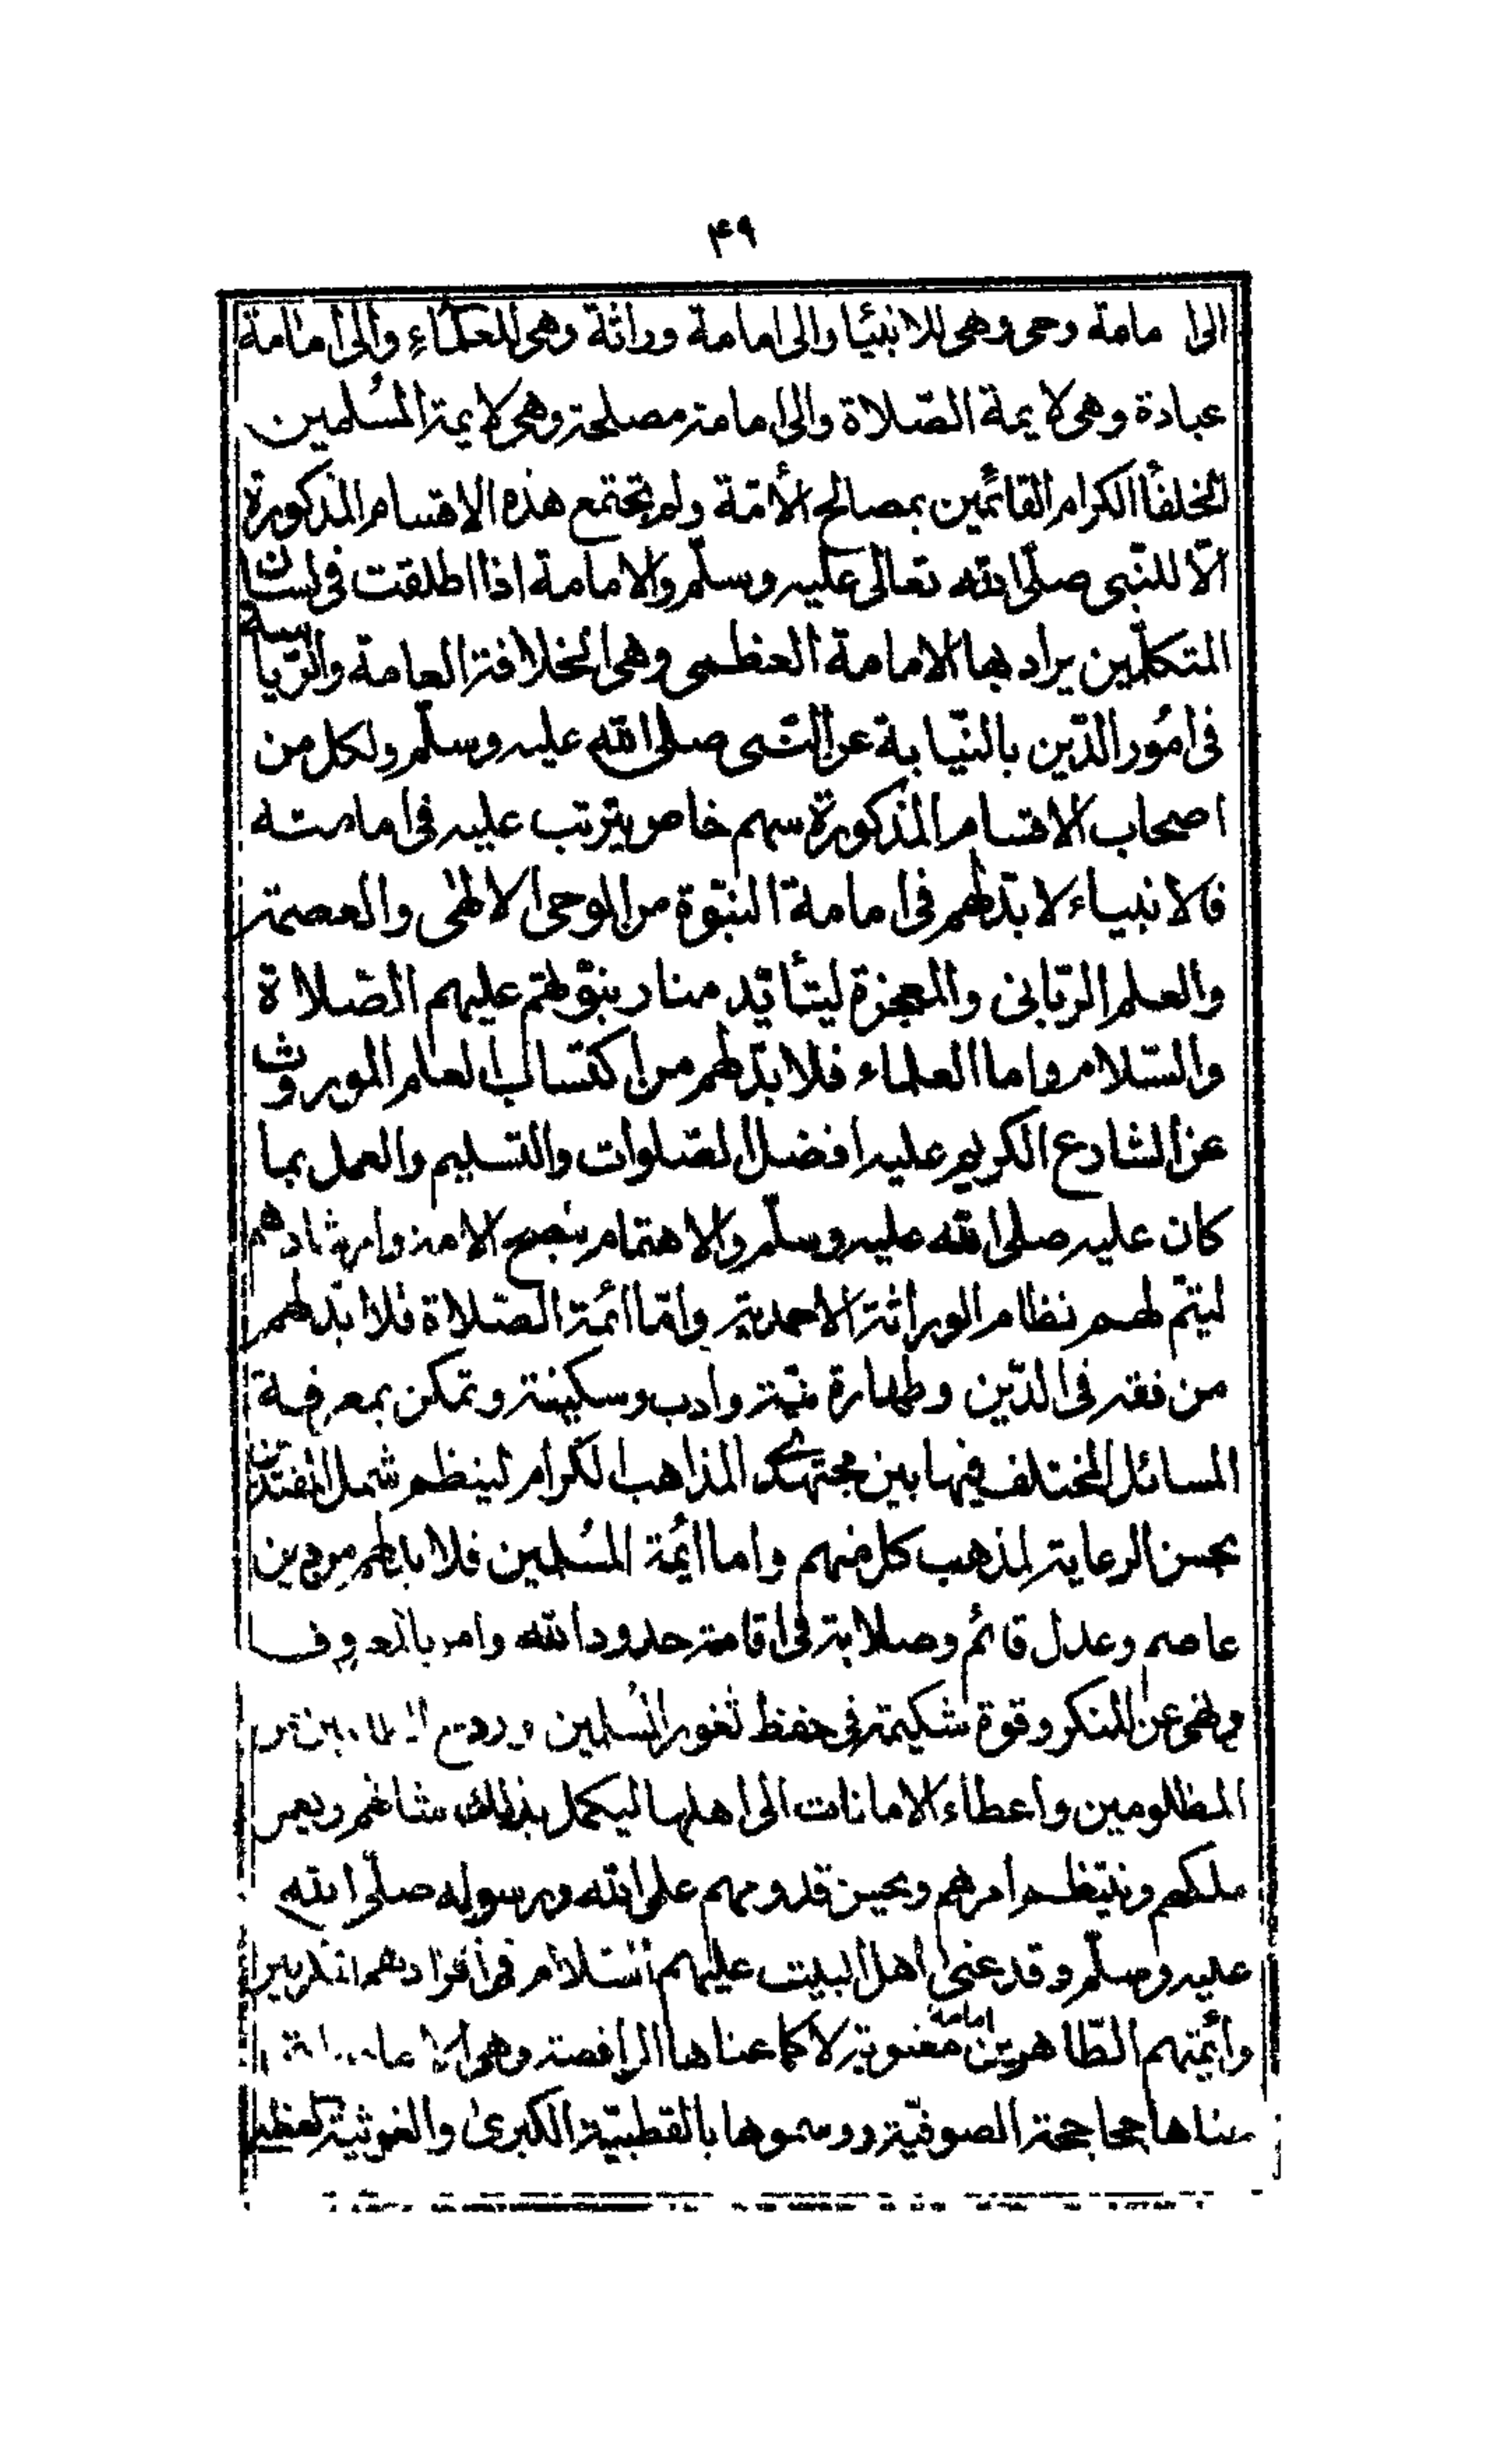 ۴۹
الى امامة وحى وهى للانبياء والى امامة وراثة وهى للعلماء والى امامة
عبادة وهى لايمة الصّلاة والى امامة مصلحة وهى لايمة المسُلمين
الخلفاُ الكرام القائمين بمصالح الأمّة ولم تجتمع هذه الاقسام المذكورة
الّا للنّبى صلّى الله تعالى عليه وسلّم والامامة اذا اطلقت فى لسان
المتكلّمين يراد بها الامامة العظمى وهى الخلافة العامة والرّياسة
فى امُور الدّين بالنّيابة عن النّبى صلى الله عليه وسلّم ولكل من
اصحاب الاقسام المذكورة سهم خاص يترتب عليه فى امامته
فالانبياء لا بدّ لهم فى امامة النبّوة من الوحى الالهٰى والعصمة
والعلم الربّانى والمعجزة ليتأيّد منار نبوّتهم عليهم الصّلاة
والسّلام واما العلماء فلا بدّ لهم من اكتساب العلم الموروث
عن الشارع الكريم عليه افضل الصّلوات والتسليم والعمل بما
كان عليه صلى الله عليه وسلّم والاهتمام بنصح الامة وارشادهم
ليتمّ لهم نظام الوراثة الاحمدية وامّا ائمة الصّلاة فلا بدّ لهم
من فقه فى الدّين وطهارة نيّة وادب وسكينة وتمكن بمعرفة
المسائل المختلف فيها بين مجتهدى المذاهب الكرام لينظم شمل المقتدين
بحسن الرعاية لمذهب كل منهم واما ائمة المسُلمين فلا بد لهم من دين
عاصم وعدل قائم وصلابة فى اقامة حدود الله وامر بالمعروف
ونهى عن المنكر وقوة شكيمة فى حفظ ثغور المسُلمين وردع
المظلومين واعطاء الامانات الى اهلها ليكمل بذلك شانهم ويعمر
ملكهم وينتظم امرهم ويحسن قدومهم على الله ورسوله صلّى الله
عليه وسلّم وقد عنى اهل البيت عليهم السّلام فى افرادهم
وائمتهم الطّاهرين امامة معنوية لا كما عناها الرافضة وهى
عناها جحاجحة الصوفيّة ورسموها بالقطبيّة الكبرىٰ والغوثية العظمى